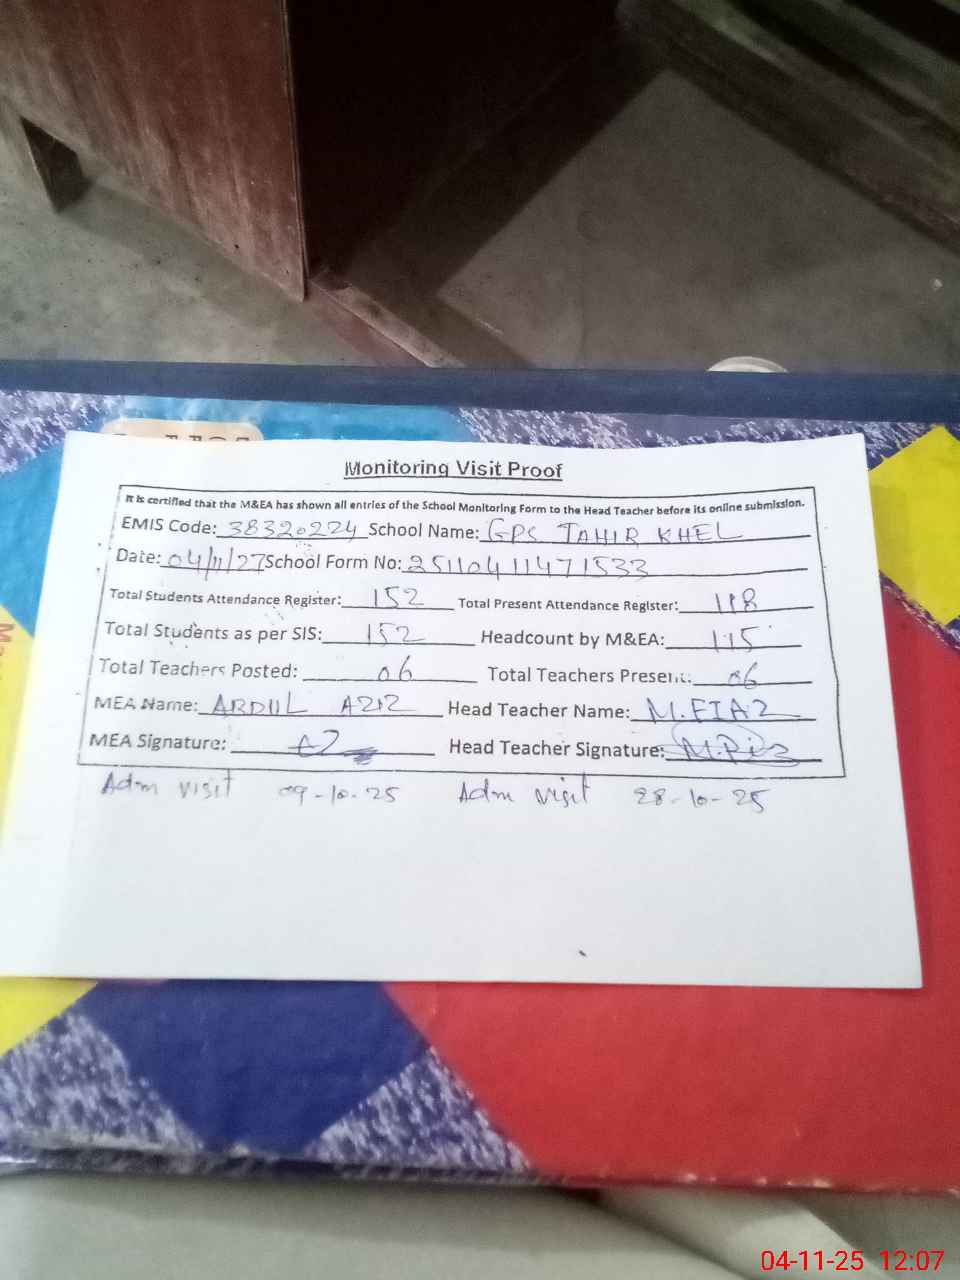 Monitoring Visit Proof
It is certified that the M&EA has shown all entries of the School Monitoring Form to the Head Teacher before its online submission.
EMIS Code: 38320224 School Name: GPS TAHIR KHEL
Date: 04/11/27 School Form No: 25110411471533
Total Students Attendance Register: 152 Total Present Attendance Register: 118
Total Students as per SIS: 152 Headcount by M&EA: 115
Total Teachers Posted: 06 Total Teachers Present: 06
MEA Name: ABDUL AZIZ Head Teacher Name: M.FIAZ
MEA Signature: AZ Head Teacher Signature:
Adm visit 09-10-25 Adm visit 28-10-25
04-11-25 12:07